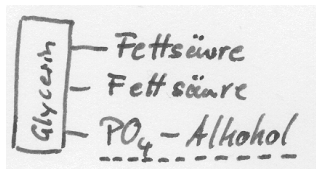 Glycerin
Fettsäure
Fettsäure
PO₄ - Alkohol